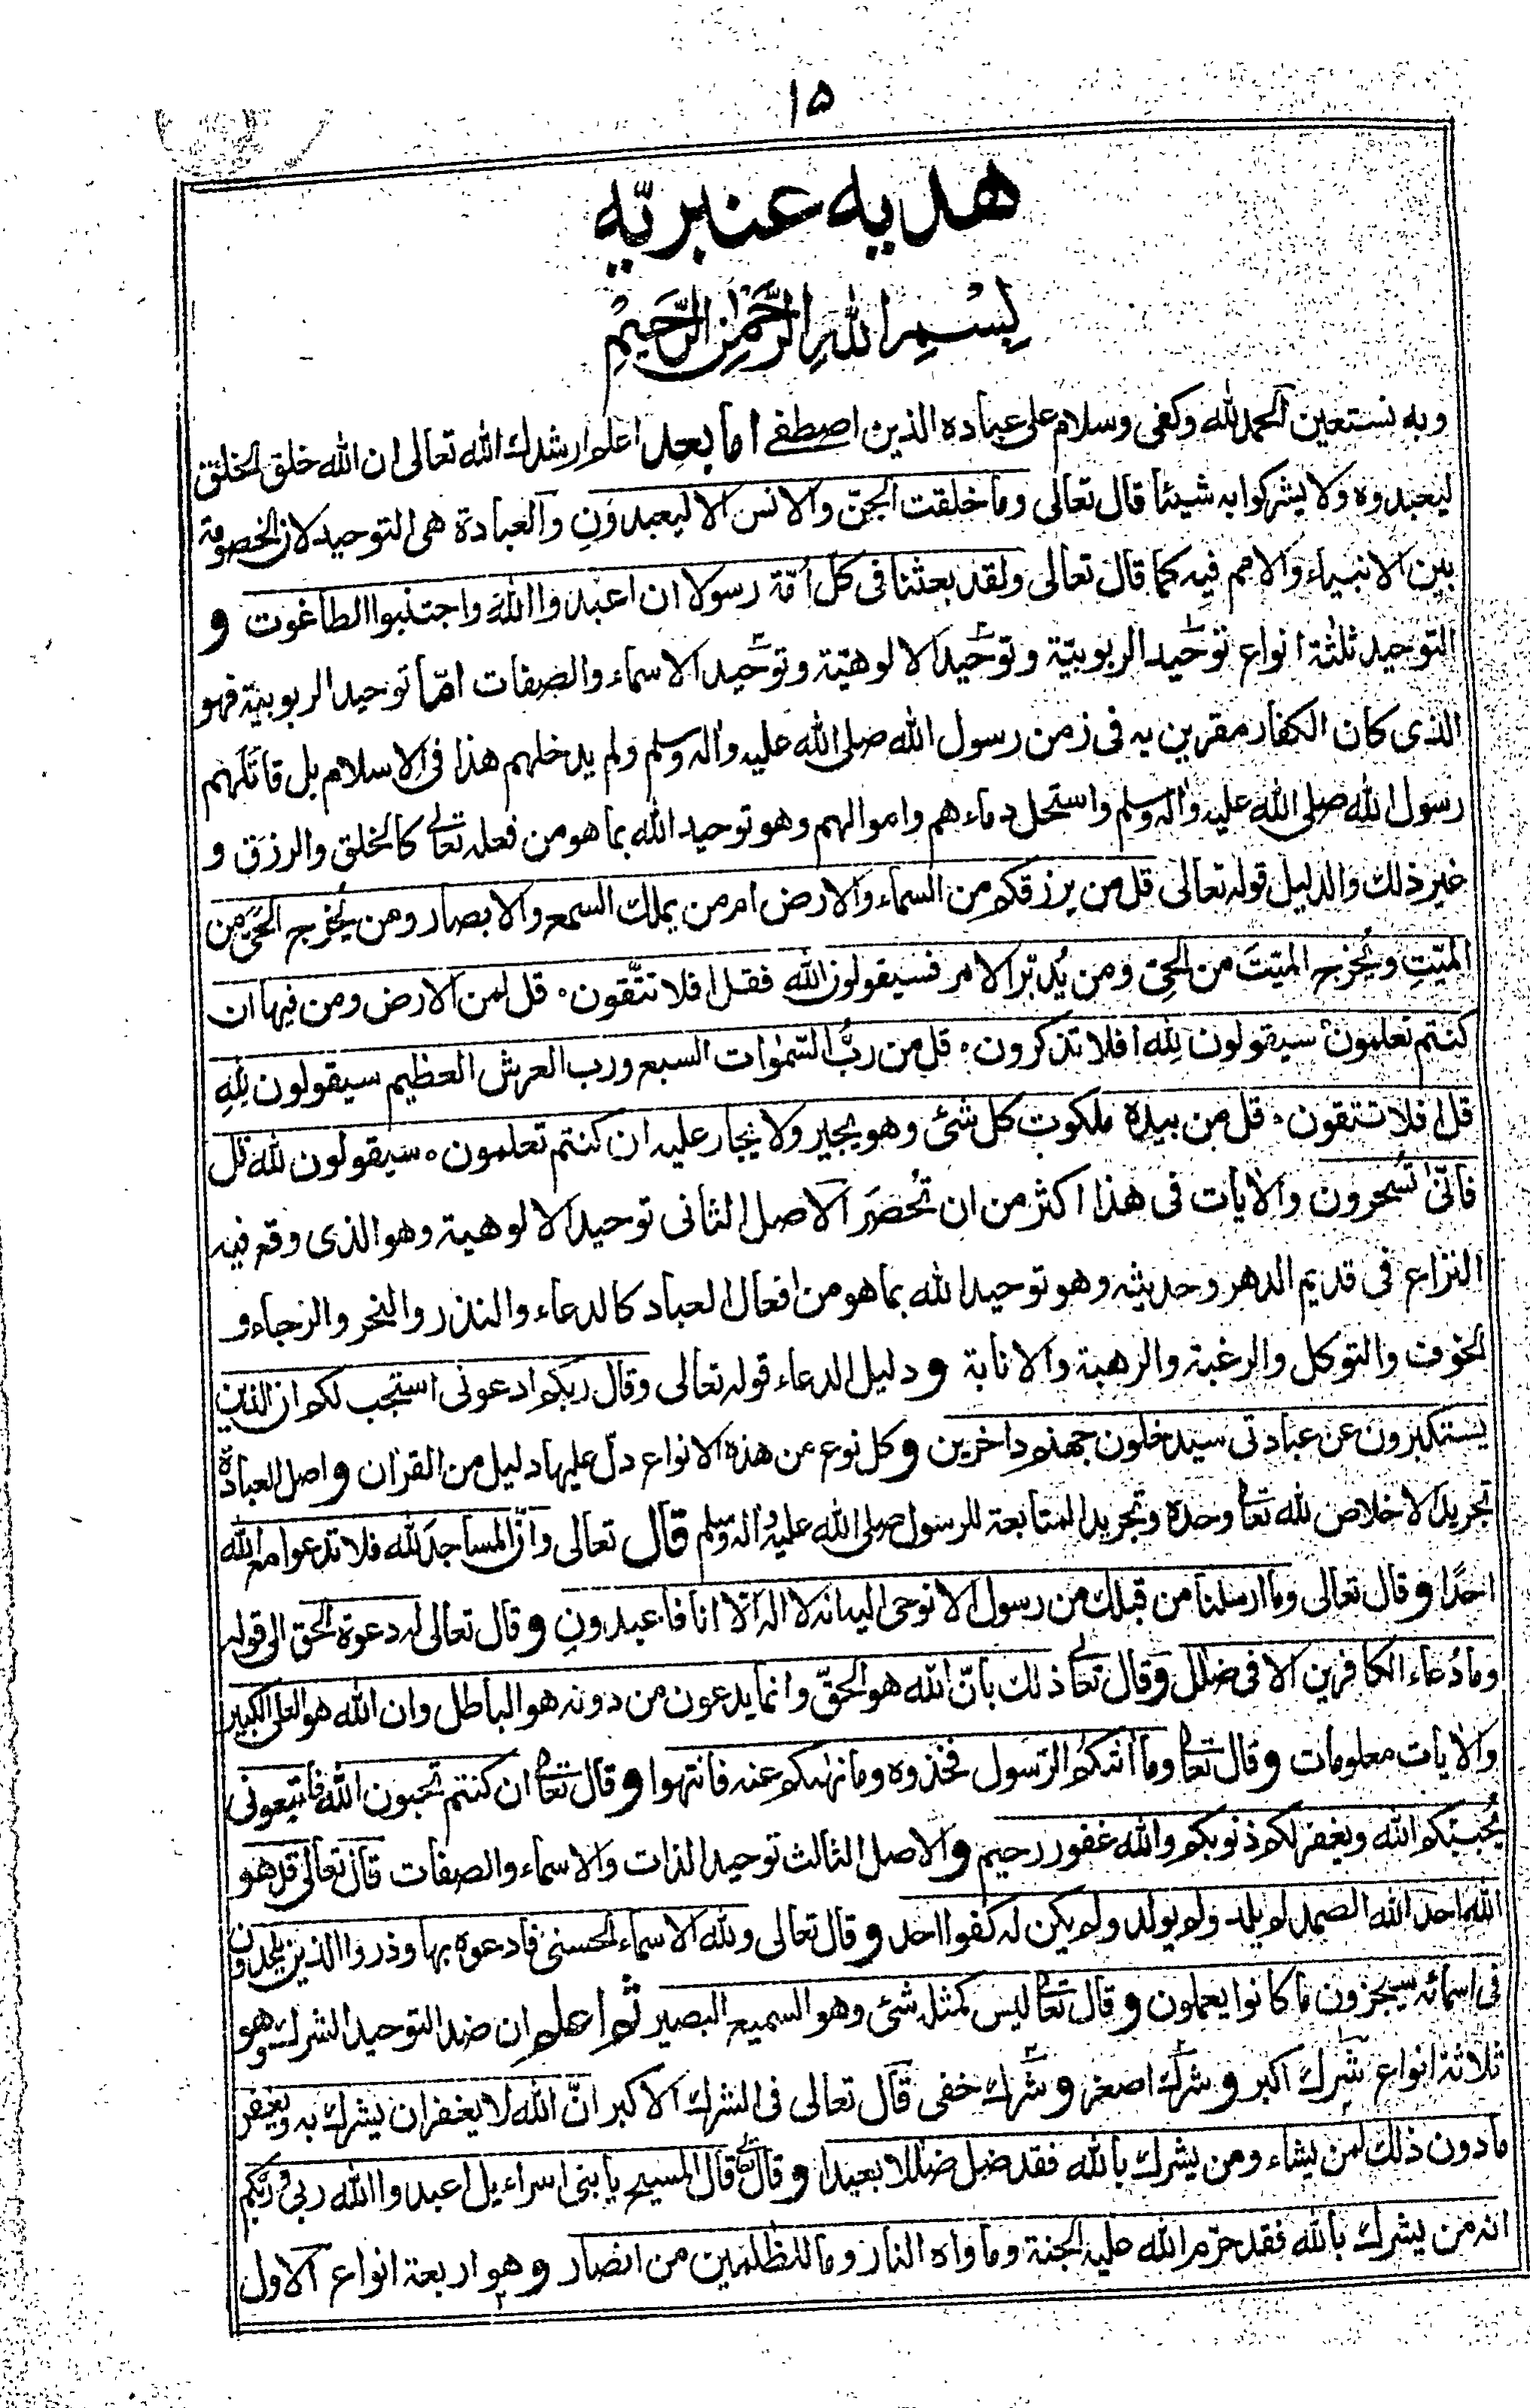 ۱۵
هديه عنبريّه
بِسْمِ اللهِ الرَّحْمٰنِ الرَّحِيْمِ
وبه نستعين الحمد لله وكفى وسلام على عباده الذين اصطفے اما بعد اعلم ارشدك الله تعالى ان الله خلق الخلق
ليعبدوه ولا يشركوا به شيئا قال تعالى وما خلقت الجنّ والانس الا ليعبدونِ والعبادة هى التوحيد لان الخصومة
بين الانبياء والامم فيه كما قال تعالى ولقد بعثنا فى كل اُمّة رسولا ان اعبدوا الله واجتنبوا الطاغوت و
التوحيد ثلثة انواع توحيد الربوبيّة وتوحيد الالوهيّة وتوحيد الاسماء والصفات امّا توحيد الربوبيّة فهو
الذى كان الكفار مقرين به فى زمن رسول الله صلى الله عليه واله وسلم ولم يدخلهم هذا فى الاسلام بل قاتلهم
رسول الله صلى الله عليه واله وسلم واستحل دماءهم واموالهم وهو توحيد الله بما هو من فعله تعالے كالخلق والرزق و
غير ذلك والدليل قوله تعالى قل من يرزقكم من السماء والارض ام من يملك السمع والابصار ومن يُخرج الحَىَّ من
الميّتِ ويُخرج الميّتَ من الحىّ ومن يُدبّر الامر فسيقولون الله فقل افلا تتّقون ۰ قل لمن الارض ومن فيها ان
كنتم تعلمون سيقولون لِلّٰه افلا تذكرون ۰ قل من ربُّ السّمٰوات السبع ورب العرش العظيم سيقولون لِلّٰهِ
قل افلا تتقون ۰ قل من بيده ملكوت كل شئ وهو يجير ولا يجار عليه ان كنتم تعلمون ۰ سيقولون لله قل
فانّىٰ تُسحرون والايات فى هذا اكثر من ان تُحصَر الاصل الثانى توحيد الالوهية وهو الذى وقع فيه
النزاع فى قديم الدهر وحديثه وهو توحيد الله بما هو من افعال العباد كالدعاء والنذر والنحر والرجاء و
الخوف والتوكل والرغبة والرهبة والانابة و دليل الدعاء قوله تعالى وقال ربكم ادعونى استجب لكم ان الذين
يستكبرون عن عبادتى سيدخلون جهنم داخرين وكل نوع من هذه الانواع دلّ عليها دليل من القران واصل العبادة
تجريد الاخلاص لله تعالٰى وحده وتجريد المتابعة للرسول صلى الله عليه واله وسلم قال تعالى وانّ المساجدَ لله فلا تدعوا مع الله
احدًا وقال تعالى وما ارسلنا من قبلك من رسول الا نوحى اليه انه لا اله الّا انا فاعبدونِ وقال تعالى له دعوة الحق الى قوله
وما دُعاء الكافرين الا فى ضلل وقال تعالٰى ذلك بانّ الله هو الحقّ وانما يدعون من دونه هو الباطل وان الله هو العلى الكبير
والايات معلومات وقال تعالٰى وما اٰتٰكم الرّسول فخذوه وما نهٰىكم عنه فانتهوا وقال تعالٰى ان كنتم تحبون الله فاتبعونى
يُحببكم الله ويغفر لكم ذنوبكم والله غفور رحيم والاصل الثالث توحيد الذات والاسماء والصفات قال تعالى قل هو
الله احد الله الصمد لم يلد ولم يولد ولم يكن له كفوا احد وقال تعالى ولله الاسماء الحسنىٰ فادعوه بها وذروا الذين يلحدون
فى اسمائه سيجزون ما كانوا يعملون وقال تعالٰى ليس كمثله شئ وهو السميع البصير ثم اعلم ان ضد التوحيد الشرك وهو
ثلاثة انواع شرك اكبر وشرك اصغر وشرك خفى قال تعالى فى الشرك الاكبر انّ الله لا يغفر ان يشرك به ويغفر
ما دون ذلك لمن يشاء ومن يشرك بالله فقد ضل ضللا بعيدا وقال تعالٰى قال المسيح يا بنى اسراءيل اعبدوا الله ربى وربكم
انه من يشرك بالله فقد حرّم الله عليه الجنة وماواه النار وما للظلمين من انصار وهو اربعة انواع الاول